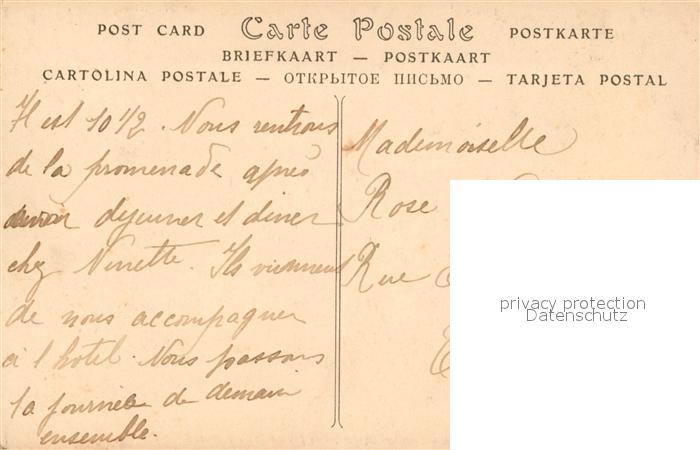 POST CARD Carte Postale POSTKARTE
BRIEFKAART — POSTKAART
CARTOLINA POSTALE — ОТКРЫТОЕ ПИСЬМО — TARJETA POSTAL
Il est 10 1/2. Nous rentrons
de la promenade après
avoir dejeuner et diner
chez Ninette. Ils viennent
de nous accompagner
à l'hotel. Nous passons
la journée de demain
ensemble.
Mademoiselle
Rose
Rue
privacy protection
Datenschutz